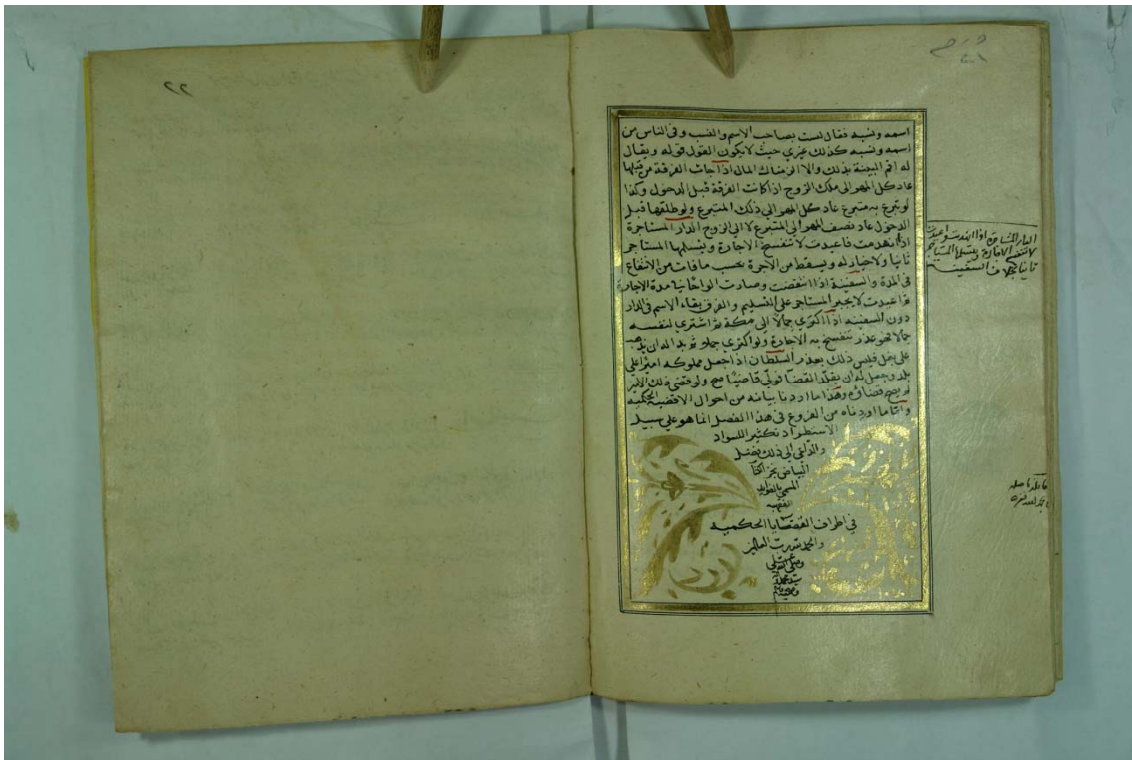 اسمه ونسبه فقال لست بصاحب الاسم والنسب وفي الناس من
اسمه ونسبه كذلك غيري حيث لا يكون القول قوله ويقال
له اقم البينة بذلك والا الزمناك المال اذا جات الفرقة من قبلها
عاد كل المهر الى ملك الزوج اذا كانت الفرقة قبل الدخول وكذا
لو تبرع به متبرع عاد كل المهر الي ذلك المتبرع ولو طلقها قبل
الدخول عاد نصف المهر الى المتبرع لا الى الزوج الدار المستاجرة
اذا انهدمت فاعيدت لا تنفسخ الاجارة ويتسلمها المستاجر
ثانيا ولا خيار له ويسقط من الاجرة بحسب ما فات من الانتفاع
في المدة والسفينة اذا انتقضت وصارت الواحا في مدة الاجارة
ثم اعيدت لا يجبر المستاجر على التسليم والفرق بقاء الاسم في الدار
دون السفينة اذا اكتري جمالا الى مكة ثم اشتري لنفسه
جمالا فهو عذر تنفسخ به الاجارة ولو اكتري جملا ثم بدا له ان يذهب
على بغل فليس ذلك بعذر السلطان اذا جعل مملوكه اميرا على
بلد وجعل له ان يقلد القضا فولي قاضيا صح ولو قضي ذلك الامير
لم يصح قضاؤه وهذا ما اردنا بيانه من احوال الاقضية الحكمية
واما ما اوردناه من الفروع في هذا الفصل انما هو علي سبيل
الاستطراد تكثير السواد
الى ذلك بفضل
البياض نجز الكتاب
المسمي بالفواكه
في اطراف القضايا الحكميه
والحمد لله رب العالمين
وصلى الله على
سيدنا محمد
وصحبه وسلم
الدار المستاجرة اذا انهدمت واعيدت
لا تنفسخ الاجارة ويتسلمها المستاجر
ثانيا بخلاف السفينة
٢٢